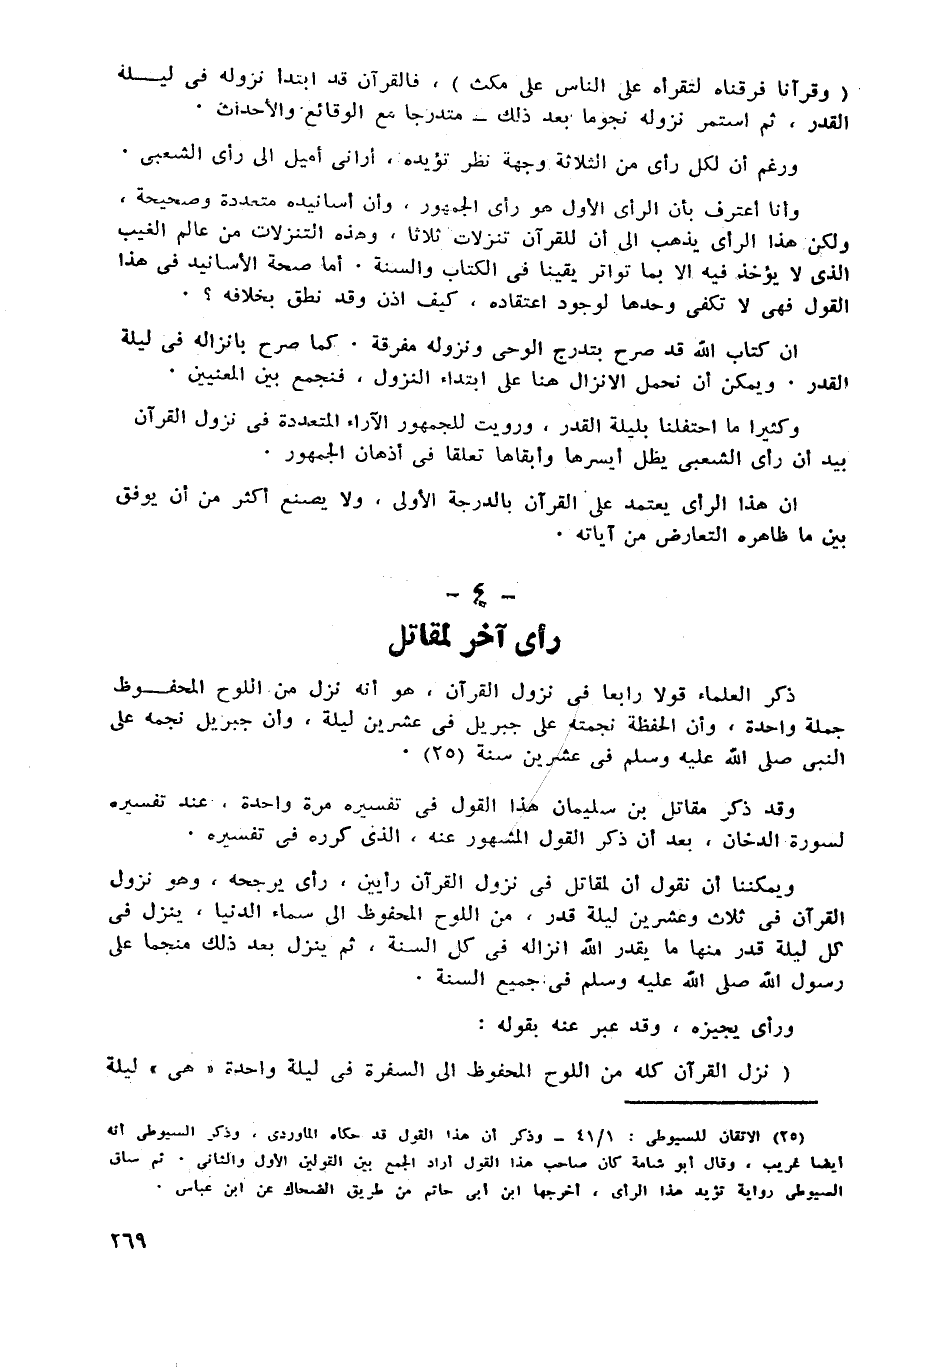 ( وقرآنا فرقناه لتقرأه على الناس على مكث ) ، فالقرآن قد ابتدأ نزوله فى ليـــلة
القدر ، ثم استمر نزوله نجوما بعد ذلك ــ متدرجا مع الوقائع والأحداث ٠
ورغم أن لكل رأى من الثلاثة وجهة نظر تؤيده ، أرانى أميل الى رأى الشعبى ٠
وأنا أعترف بأن الرأى الأول هو رأى الجمهور ، وأن أسانيده متعددة وصحيحة ،
ولكن هذا الرأى يذهب الى أن للقرآن تنزلات ثلاثا ، وهذه التنزلات من عالم الغيب
الذى لا يؤخذ فيه الا بما تواتر يقينا فى الكتاب والسنة ٠ أما صحة الأسانيد فى هذا
القول فهى لا تكفى وحدها لوجود اعتقاده ، كيف اذن وقد نطق بخلافه ؟ ٠
ان كتاب الله قد صرح بتدرج الوحى ونزوله مفرقة ٠ كما صرح بانزاله فى ليلة
القدر ٠ ويمكن أن نحمل الانزال هنا على ابتداء النزول ، فنجمع بين المعنيين ٠
وكثيرا ما احتفلنا بليلة القدر ، ورويت للجمهور الآراء المتعددة فى نزول القرآن
بيد أن رأى الشعبى يظل أيسرها وأبقاها تعلقا فى أذهان الجمهور ٠
ان هذا الرأى يعتمد على القرآن بالدرجة الأولى ، ولا يصنع أكثر من أن يوفق
بين ما ظاهره التعارض من آياته ٠
- ٤ -
رأى آخر لمقاتل
ذكر العلماء قولا رابعا فى نزول القرآن ، هو أنه نزل من اللوح المحفـــوظ
جملة واحدة ، وأن الحفظة نجمته على جبريل فى عشرين ليلة ، وأن جبريل نجمه على
النبى صلى الله عليه وسلم فى عشرين سنة (٢٥) ٠
وقد ذكر مقاتل بن سليمان هذا القول فى تفسيره مرة واحدة ، عند تفسيره
لسورة الدخان ، بعد أن ذكر القول المشهور عنه ، الذى كرره فى تفسيره ٠
ويمكننا أن نقول أن لمقاتل فى نزول القرآن رأيين ، رأى يرجحه ، وهو نزول
القرآن فى ثلاث وعشرين ليلة قدر ، من اللوح المحفوظ الى سماء الدنيا ، ينزل فى
كل ليلة قدر منها ما يقدر الله انزاله فى كل السنة ، ثم ينزل بعد ذلك منجما على
رسول الله صلى الله عليه وسلم فى جميع السنة ٠
ورأى يجيزه ، وقد عبر عنه بقوله :
( نزل القرآن كله من اللوح المحفوظ الى السفرة فى ليلة واحدة « هى » ليلة
(٢٥) الاتقان للسيوطى : ٤١/١ ــ وذكر أن هذا القول قد حكاه الماوردى ، وذكر السيوطى أنه
أيضا غريب ، وقال أبو شامة كان صاحب هذا القول أراد الجمع بين القولين الأول والثانى ٠ ثم ساق
السيوطى رواية تؤيد هذا الرأى ، أخرجها ابن أبى حاتم من طريق الضحاك عن ابن عباس ٠
٢٦٩